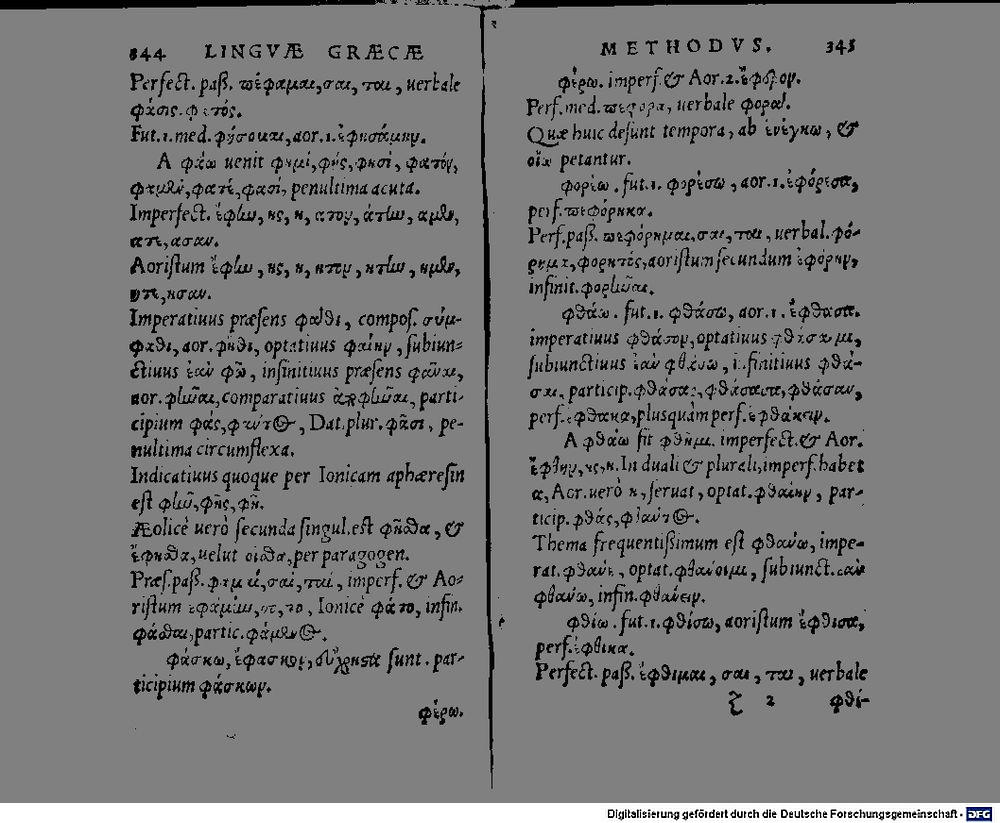 344 LINGVÆ GRÆCÆ
Perfect. paß. πέφαμαι, σαι, ται, uerbale
φάσις. φατός.
Fut. 1. med. φήσομαι, aor. 1. ἐφησάμην.
A φάω uenit φημί, φής, φησί, φατόν,
φαμὲν, φατέ, φασί, penultima acuta.
Imperfect. ἔφην, ης, η, ατον, άτην, αμεν,
ατε, ασαν.
Aoristum ἔφην, ης, η, ητον, ήτην, ημεν,
ητε, ησαν.
Imperatiuus præsens φαθι, compos. σύμ-
φαθι, aor. φῆθι, optatiuus φαίην, subiun-
ctiuus ἐὰν φῶ, infinitiuus præsens φᾶναι,
aor. φῆναι, comparatiuus, parti-
cipium φάς, φάντος, Dat. plur. φᾶσι, pe-
nultima circumflexa.
Indicatiuus quoque per Ionicam aphæresin
est φῆν, φῆς, φῆ.
Æolicè uerò secunda singul. est φῆσθα, &
ἔφησθα, uelut οἶσθα, per paragogen.
Præs. paß. φαμαί, σαί, ταί, imperf. & Ao-
ristum ἐφάμην, σο, το, Ionicè φάτο, infin.
φάσθαι, partic. φάμενος.
φάσκω, ἔφασκον, sunt. par-
ticipium φάσκων.
φέρω.
METHODVS. 345
φέρω. imperf. & Aor. 2. ἔφερον.
Perf. med. πέφορα, uerbale φορά.
Quæ huic desunt tempora, ab ἐνέγκω, &
οἴω petantur.
φορέω. fut. 1. φορέσω, aor. 1. ἐφόρεσα,
perf. πεφόρηκα.
Perf. paß. πεφόρημαι, σαι, ται, uerbal. φό-
ρημα, φορητός, aoristum secundum ἐφόρην,
infinit. φορῆναι.
φθάω. fut. 1. φθάσω, aor. 1. ἔφθασα.
imperatiuus φθάσον, optatiuus φθάσαιμι,
subiunctiuus ἐὰν φθάσω, infinitiuus φθά-
σαι, particip. φθάσας, φθάσασα, φθάσαν,
perf. ἔφθακα, plusquàm perf. ἐφθάκειν.
A φθάω fit φθῆμι. imperfect. & Aor.
ἔφθην, ης, η. In duali & plurali, imperf. habet
α, Aor. uerò η, seruat, optat. φθαίην, par-
ticip. φθάς, φθάντος.
Thema frequentißimum est φθάνω, impe-
rat. φθάνε, optat. φθάνοιμι, subiunct. ἐὰν
φθάνω, infin. φθάνειν.
φθίω. fut. 1. φθίσω, aoristum ἔφθισα,
perf. ἔφθικα.
Perfect. paß. ἔφθιμαι, σαι, ται, uerbale
2 φθί-
Digitalisierung gefördert durch die Deutsche Forschungsgemeinschaft - DFG